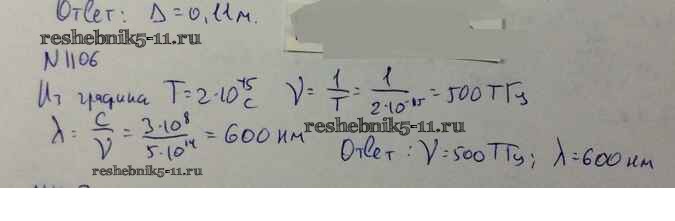 Ответ: Δ=0,11м.
reshebnik5-11.ru
N1106
Из графика T=2·10⁻¹⁵ с ν=1/T=1/(2·10⁻¹⁵)=500ТГц
λ=c/ν=3·10⁸/5·10¹⁴=600нм
reshebnik5-11.ru
Ответ: ν=500ТГц; λ=600нм
reshebnik5-11.ru